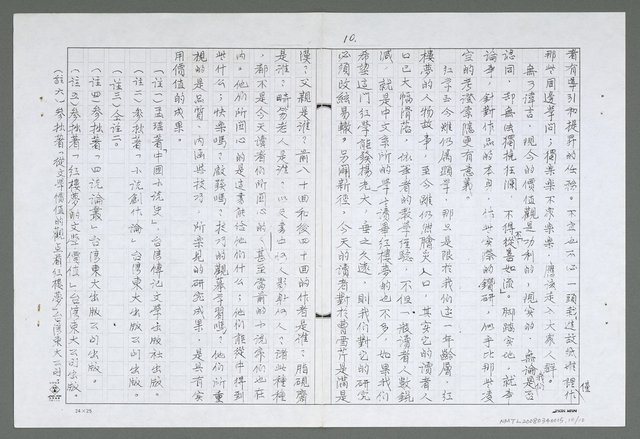 10.
者有導引和提昇的任務。
那些周邊學問；獨樂樂不如眾樂樂，應該走入大眾人群。
無可諱言，現今的價值觀是功利的，現實的，無論是否
認同，卻無法獨挽狂瀾，不得從善如流。腳踏實地，就事
論事，針對作品的本身，作出實際的鑽研，似乎比那些凌
空的考證索隱更有意義。
紅學至今雖仍屬顯學，那只是限於我們這一年齡層，紅
樓夢的人物故事，至今雖仍然膾炙人口，其實它的讀者人
口已大幅滑落，依筆者的教學經驗，不但一般讀者人數銳
減，就是中文系所的學生讀畢紅樓夢的也不多，如果我們
希望這門紅學能發揚光大，垂之久遠，則我們對它的研究
必須改絃易轍，另闢新徑，今天的讀者對於曹雪芹是滿是
漢？又顯是誰？前八十回和後四十回的作者是誰？脂硯齋
是誰？畸笏老人是誰？以及書中何人影射何人？諸此種種
，都不是今天讀者們所關心的，甚至當前的小說家們也在
內。他們所關心的是這書能給他們什么；他們能從中得到
些什么；快樂嗎？啟發嗎？技巧的觀摩學習嗎？他們所重
視的是品質、內涵與技巧，所樂見的研究成果，是具有實
用價值的成果。
（註一）孟瑤著中國小說史」台灣傳記文學出版社出版。
（註二）參拙著「小說創作論」台灣東大出版公司出版。
（註三）仝註二。
（註四）參拙著「四說論叢」台灣東大出版公司出版。
（註五）參拙著「紅樓夢的文學價值」台灣東大公司出版。
（註六）參拙著「從文學價值的觀点看紅樓夢」台灣東大公司
24×25
NMTL20080340015,10/10